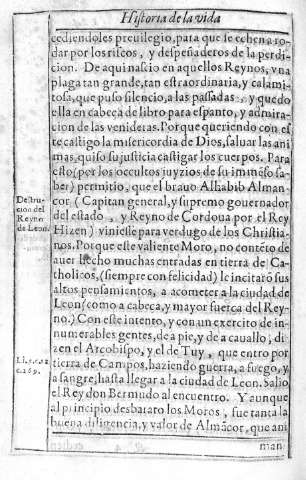 Historia de la vida
cediendoles preuilegio, para que se echen a ro-
dar por los riscos, y despeñaderos de la perdi-
cion. De aqui nascio en aquellos Reynos, vna
plaga tan grande, tan estraordinaria, y calami-
tosa, que puso silencio, a las passadas, y quedo
ella en cabeça de libro para espanto, y admira-
cion de las venideras. Porque queriendo con es
te castigo la misericordia de Dios, saluar las ani
mas, quiso su justicia castigar los cuerpos. Para
esto (por los occultos juyzios de su immēso sa-
ber) permitio, que el brauo Alhabib Alman-
Destru-
cion del
Reyno
de Leon.
çor (Capitan general, y supremo gouernador
del estado, y Reyno de Cordoua por el Rey
Hizen) viniesse para verdugo de los Christia-
nos. Porque este valiente Moro, no contēto de
auer hecho muchas entradas en tierra de Ca-
tholicos, (siempre con felicidad) le incitarō sus
altos pensamientos, a acometer a la ciudad de
Leon (como a cabeça, y mayor fuerça del Rey-
no.) Con este intento, y con vn exercito de in-
numerables gentes, de a pie, y de a cauallo, di
zen el Arcobispo, y el de Tuy, que entro por
tierra de Campos, haziendo guerra, a fuego, y
a sangre, hasta llegar a la ciudad de Leon. Salio
el Rey don Bermudo al encuentro. Y aunque
al principio desbarato los Moros, fue tanta la
buena diligencia, y valor de Almācor, que ani
man